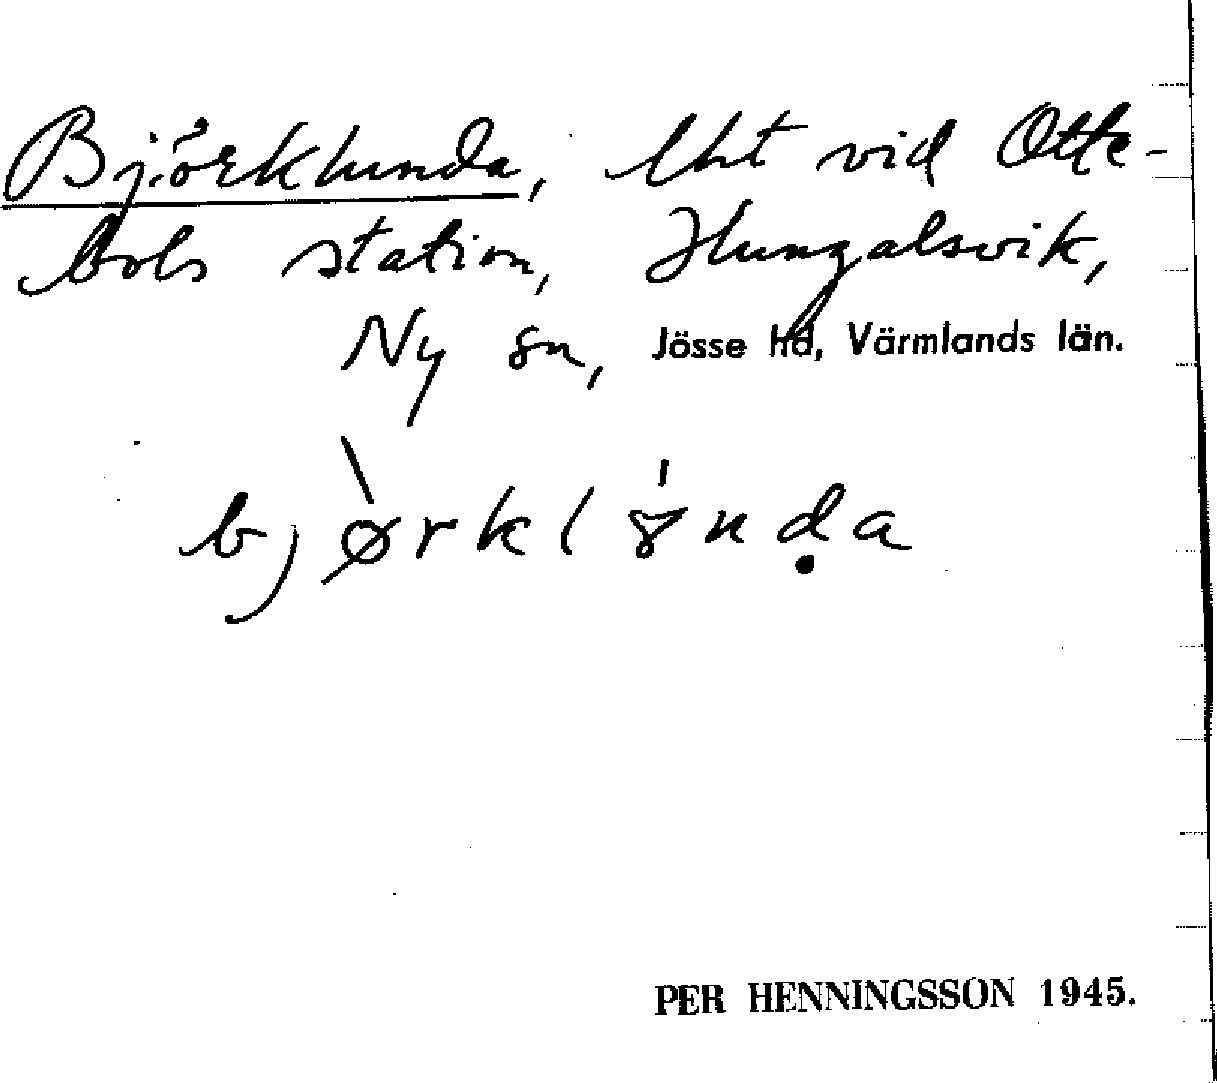 Björklunda, lht vid Otte-
bols station, Hungalsvik,
Ny sn, Jösse hd, Värmlands län.
bjø̀rklɤ́nḍa
PER HENNINGSSON 1945.